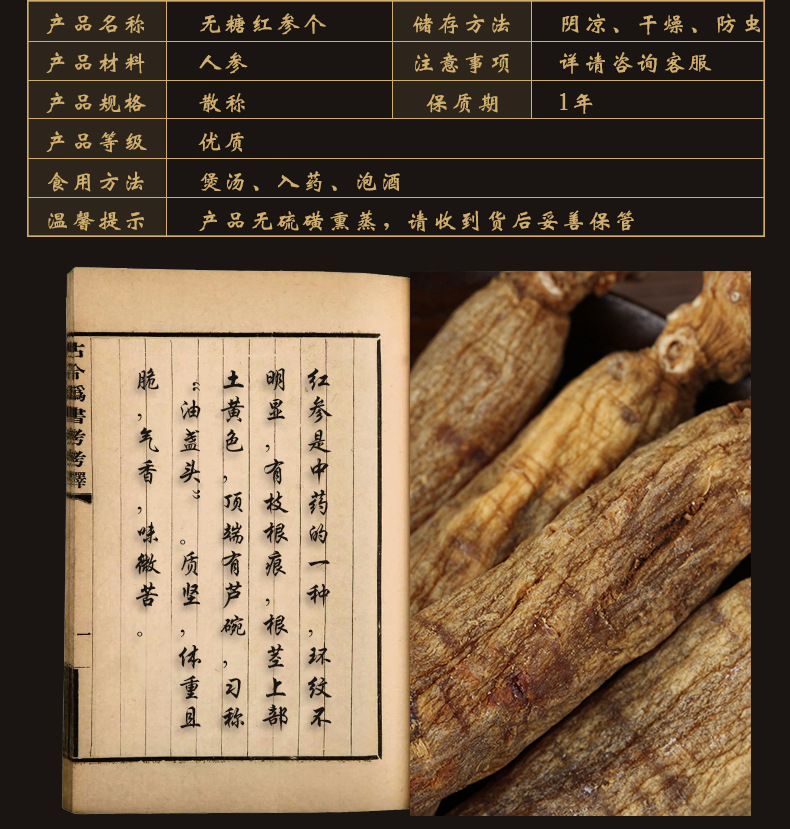 产品名称 无糖红参个 储存方法 阴凉、干燥、防虫
产品材料 人参 注意事项 详请咨询客服
产品规格 散称 保质期 1年
产品等级 优质
食用方法 煲汤、入药、泡酒
温馨提示 产品无硫磺熏蒸，请收到货后妥善保管
红参是中药的一种，环纹不
明显，有枝根痕，根茎上部
土黄色，顶端有芦碗，习称
“油盏头”。质坚，体重且
脆，气香，味微苦。
古今偽書考考釋
一